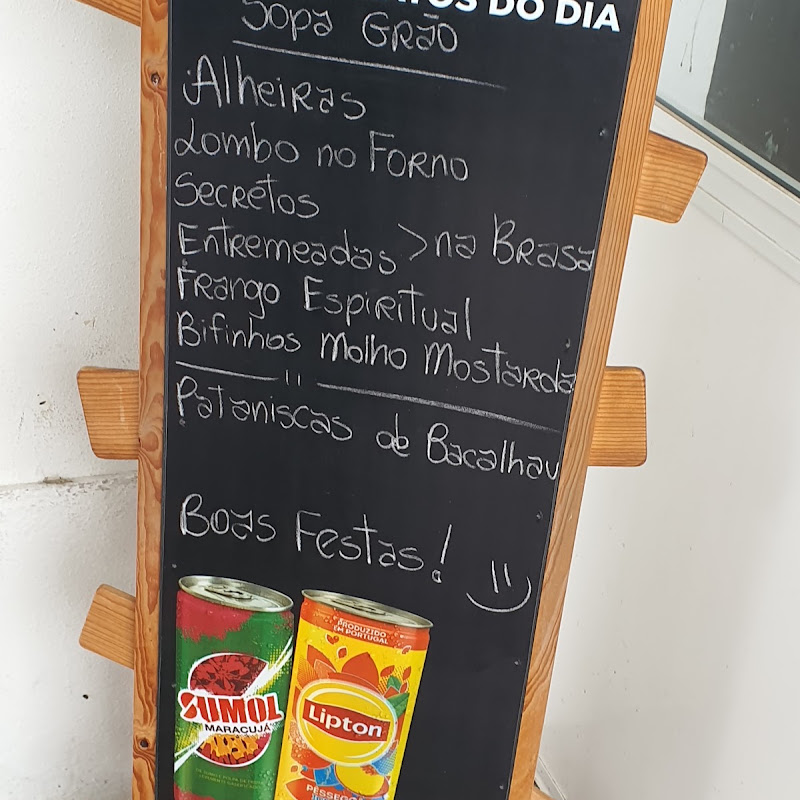 DO DIA
Sopa Grão
Alheiras
Lombo no Forno
Secretos
Entremeadas > na Brasa
Frango Espiritual
Bifinhos Molho Mostarda
Pataniscas de Bacalhau
Boas Festas!
SUMOL
MARACUJÁ
PRODUZIDO
EM PORTUGAL
Lipton
PÊSSEGO